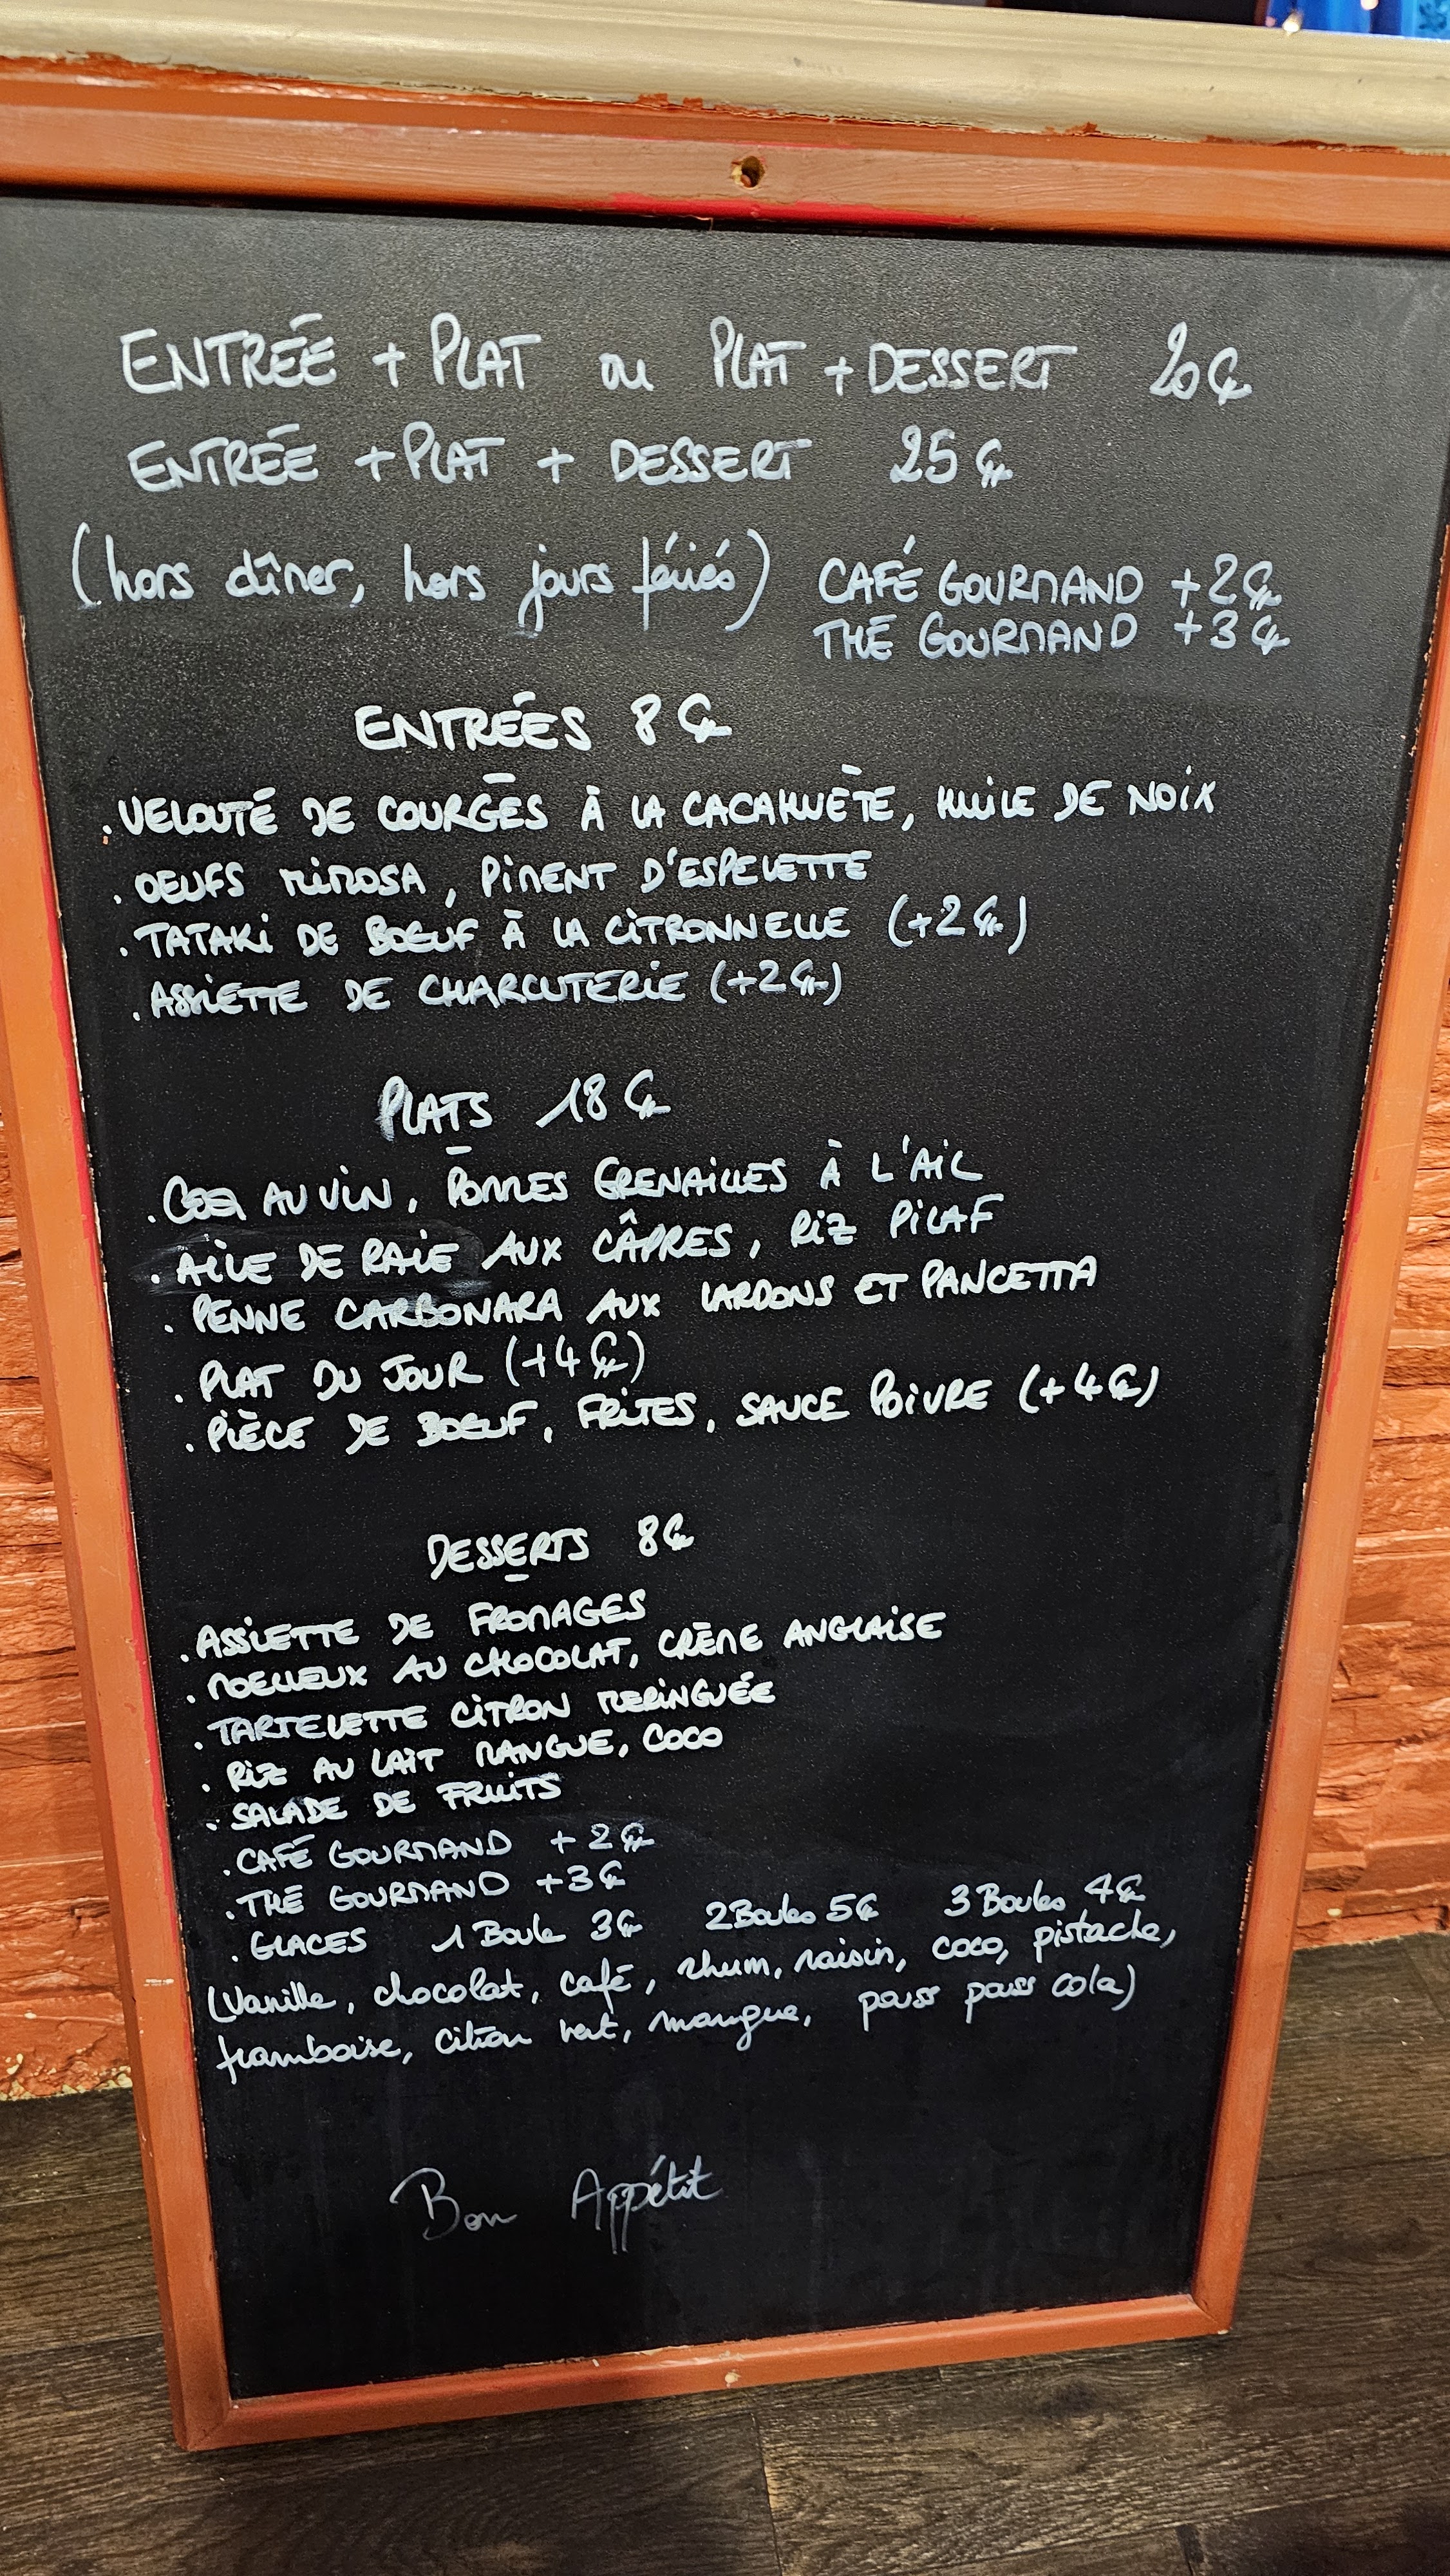 ENTRÉE + PLAT ou PLAT + DESSERT 20€
ENTRÉE + PLAT + DESSERT 25€
(hors dîner, hors jours fériés) CAFÉ GOURMAND +2€
THÉ GOURMAND +3€
ENTRÉES 8€
. VELOUTÉ DE COURGES À LA CACAHUÈTE, HUILE DE NOIX
. OEUFS MIMOSA, PIMENT D'ESPELETTE
. TATAKI DE BOEUF À LA CITRONNELLE (+2€)
. ASSIETTE DE CHARCUTERIE (+2€)
PLATS 18€
. COQ AU VIN, POMMES GRENAILLES À L'AIL
. AILE DE RAIE AUX CÂPRES, RIZ PILAF
. PENNE CARBONARA AUX LARDONS ET PANCETTA
. PLAT DU JOUR (+4€)
. PIÈCE DE BOEUF, FRITES, SAUCE POIVRE (+4€)
DESSERTS 8€
. ASSIETTE DE FROMAGES
. MOELLEUX AU CHOCOLAT, CRÈME ANGLAISE
. TARTELETTE CITRON MERINGUÉE
. RIZ AU LAIT MANGUE, COCO
. SALADE DE FRUITS
. CAFÉ GOURMAND +2€
. THÉ GOURMAND +3€
. GLACES 1 Boule 3€ 2 Boules 5€ 3 Boules 4€
(Vanille, chocolat, café, rhum, raisin, coco, pistache,
framboise, citron vert, mangue, pouss pouss cola)
Bon Appétit